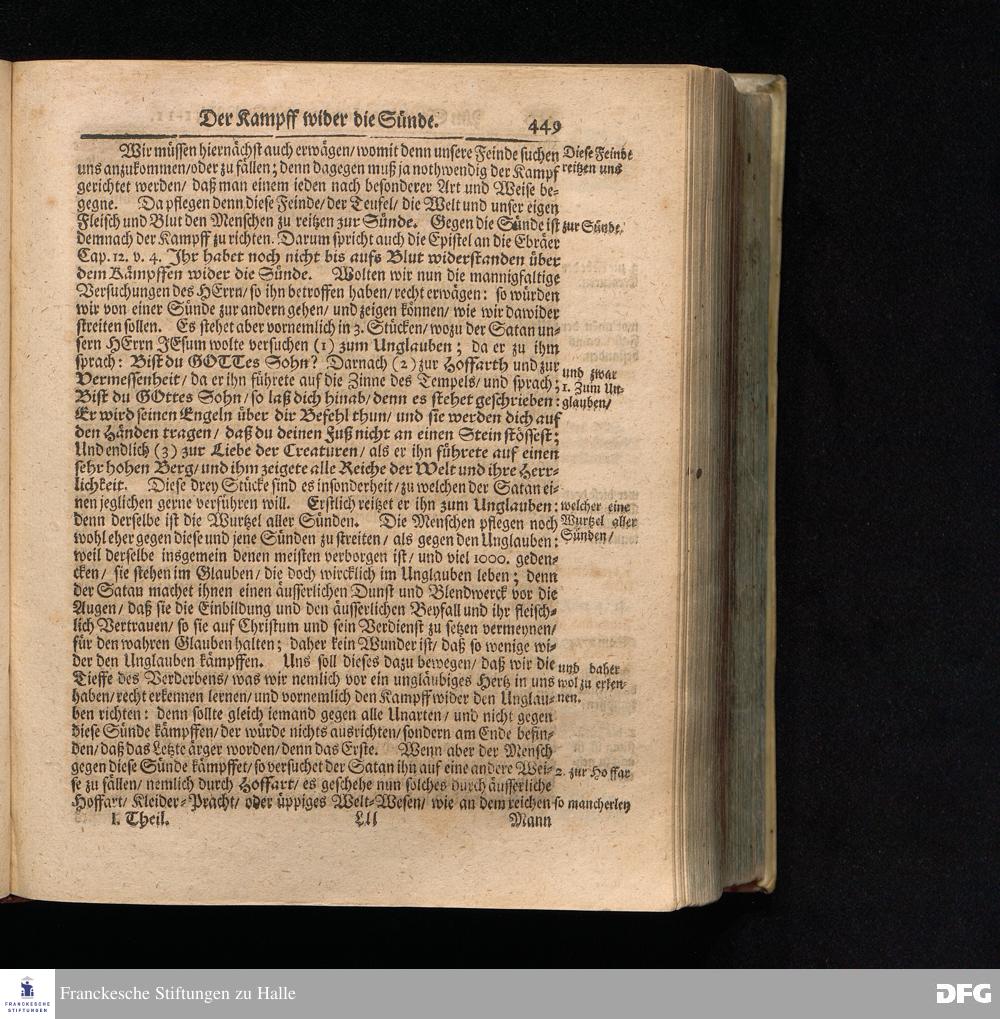 Der Kampff wider die Sünde.
449
Wir müssen hiernächst auch erwägen/ womit denn unsere Feinde suchen
uns anzukommen/ oder zu fällen; denn dagegen muß ja nothwendig der Kampf
gerichtet werden/ daß man einem ieden nach besonderer Art und Weise be-
gegne. Da pflegen denn diese Feinde/ der Teufel/ die Welt und unser eigen
Fleisch und Blut den Menschen zu reitzen zur Sünde. Gegen die Sünde ist
demnach der Kampff zu richten. Darum spricht auch die Epistel an die Ebräer
Cap. 12. v. 4. Ihr habet noch nicht bis aufs Blut widerstanden über
dem Kämpffen wider die Sünde. Wolten wir nun die mannigfaltige
Versuchungen des HErrn/ so ihn betroffen haben/ recht erwägen: so würden
wir von einer Sünde zur andern gehen/ und zeigen können/ wie wir dawider
streiten sollen. Es stehet aber vornemlich in 3. Stücken/ wozu der Satan un-
sern HErrn JEsum wolte versuchen (1) zum Unglauben; da er zu ihm
sprach: Bist du GOTTes Sohn? Darnach (2) zur Hoffarth und zur
Vermessenheit/ da er ihn führete auf die Zinne des Tempels/ und sprach;
Bist du GOttes Sohn/ so laß dich hinab/ denn es stehet geschrieben:
Er wird seinen Engeln über dir Befehl thun/ und sie werden dich auf
den Händen tragen/ daß du deinen Fuß nicht an einen Stein stössest;
Und endlich (3) zur Liebe der Creaturen/ als er ihn führete auf einen
sehr hohen Berg/ und ihm zeigete alle Reiche der Welt und ihre Herr-
lichkeit. Diese drey Stücke sind es insonderheit/ zu welchen der Satan ei-
nen jeglichen gerne verführen will. Erstlich reitzet er ihn zum Unglauben:
denn derselbe ist die Wurtzel aller Sünden. Die Menschen pflegen noch
wohl eher gegen diese und jene Sünden zu streiten/ als gegen den Unglauben:
weil derselbe insgemein denen meisten verborgen ist/ und viel 1000. geden-
cken/ sie stehen im Glauben/ die doch wircklich im Unglauben leben; denn
der Satan machet ihnen einen äusserlichen Dunst und Blendwerck vor die
Augen/ daß sie die Einbildung und den äusserlichen Beyfall und ihr fleisch-
lich Vertrauen/ so sie auf Christum und sein Verdienst zu setzen vermeynen/
für den wahren Glauben halten; daher kein Wunder ist/ daß so wenige wi-
der den Unglauben kämpffen. Uns soll dieses dazu bewegen/ daß wir die
Tieffe des Verderbens/ was wir nemlich vor ein ungläubiges Hertz in uns
haben/ recht erkennen lernen/ und vornemlich den Kampff wider den Unglau-
ben richten: denn sollte gleich iemand gegen alle Unarten/ und nicht gegen
diese Sünde kämpffen/ der würde nichts ausrichten/ sondern am Ende befin-
den/ daß das Letzte ärger worden/ denn das Erste. Wenn aber der Mensch
gegen diese Sünde kämpffet/ so versuchet der Satan ihn auf eine andere Wei-
se zu fällen/ nemlich durch Hoffart/ es geschehe nun solches durch äusserliche
Hoffart/ Kleider-Pracht/ oder üppiges Welt-Wesen/ wie an dem reichen
I. Theil.
Lll
Mann
Diese Feinde
reitzen uns
zur Sünde,
und zwar
1. Zum Un-
glauben/
welcher eine
Wurtzel aller
Sünden/
und daher
wol zu erken-
nen.
2. zur Hoffar
so mancherley
FRANCKESCHE
STIFTUNGEN
Franckesche Stiftungen zu Halle
DFG